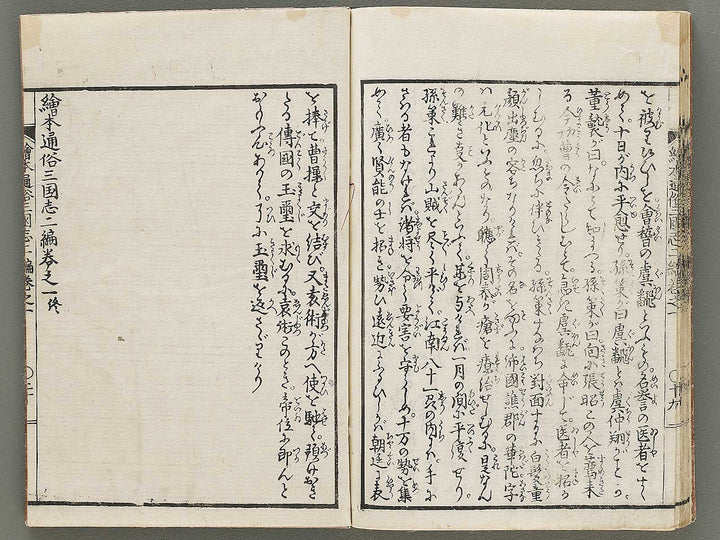 を被りひしを會稽の虞翻といふもの。名誉の医者をすゝ
めて。十日が内に平愈せり。孫策が曰虞翻とは虞仲翔がことか。
董襲が曰。孫策が曰。向に張昭この人を薦
今功曹の とて。急ぎ虞翻に命じて。医者を招か
しむるに忽ちに伴ひきたる。孫策すなわち對面するに白髪童
顔出塵の容ちなりければその名を問ふに沛國譙郡の華陀字
ハ元化といふものなり。軈て周泰が瘡を療治せしむるに是なん
の難き事かあらんといふて。薬を与へければ一月の間に平復せり。
孫策これより山賊を尽く平げ。江南八十一 の内 手に
さわる者もなければ諸将を令て要害を守らしめ。千万の勢を集
めて廣く賢能の士を招き勢ひ遠近にふるひしかバ朝廷に表
を捧て曹操と交を結び又袁術が方へ使を馳て。預けおき
たる傳國の玉璽を求むるに袁術このとき帝位に即んと
おもふ心ありて。 に玉璽を返さざりけり
繪本通俗三国志二編巻之一終